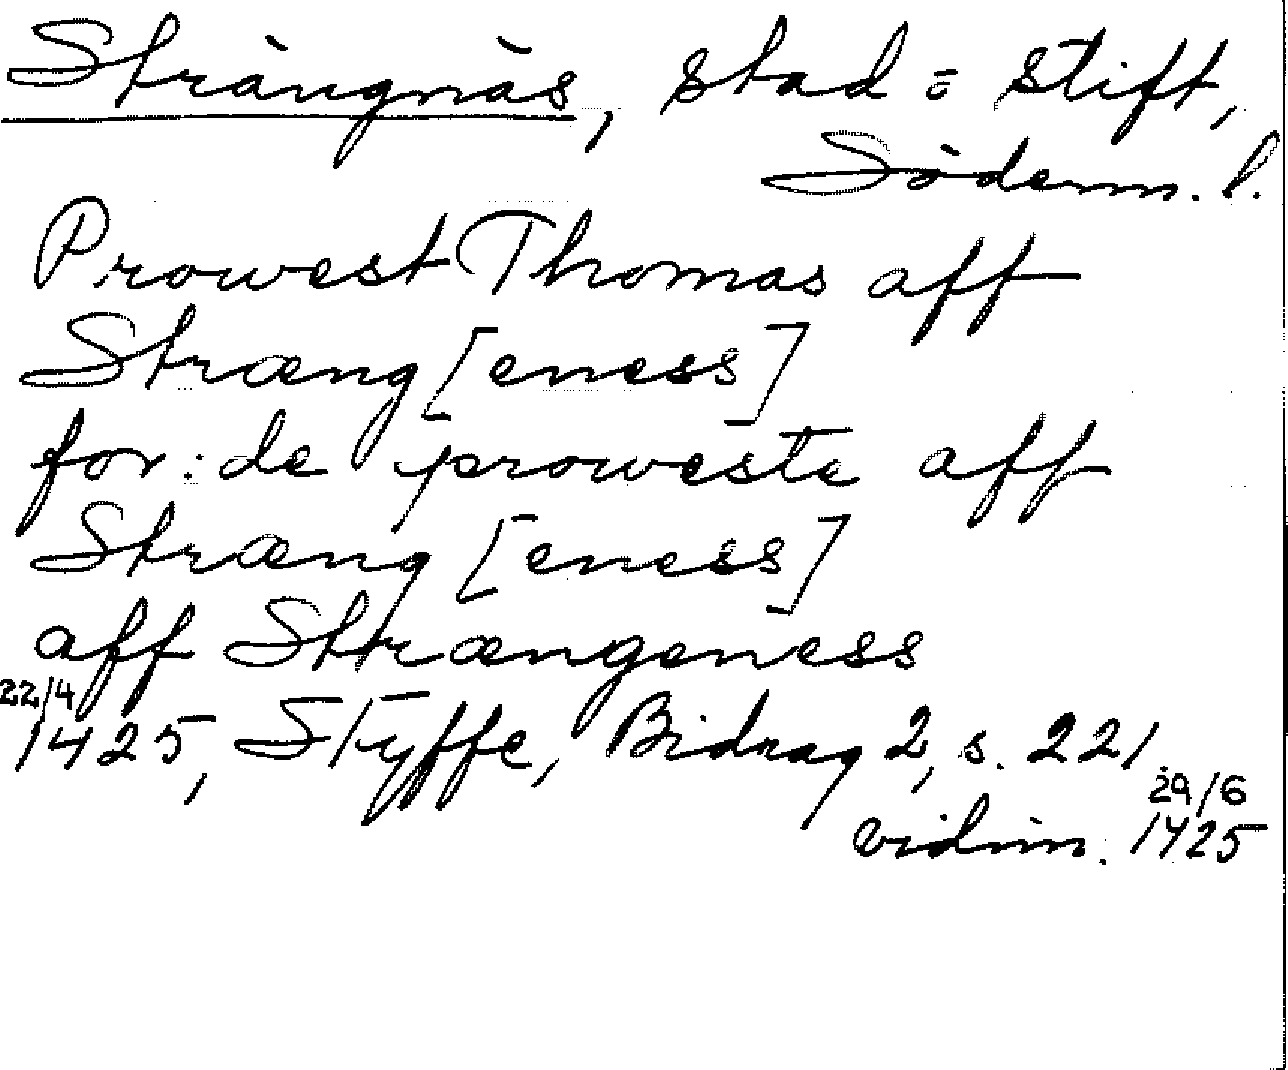 Strängnäs, stad = stift,
Söderm. l.
Prowest Thomas aff
Stræng[eness]
for: de proweste aff
Stræng[eness]
aff Strængeness
22/4
1425, Styffe, Bidrag 2, s. 221.
29/6
vidim. 1425